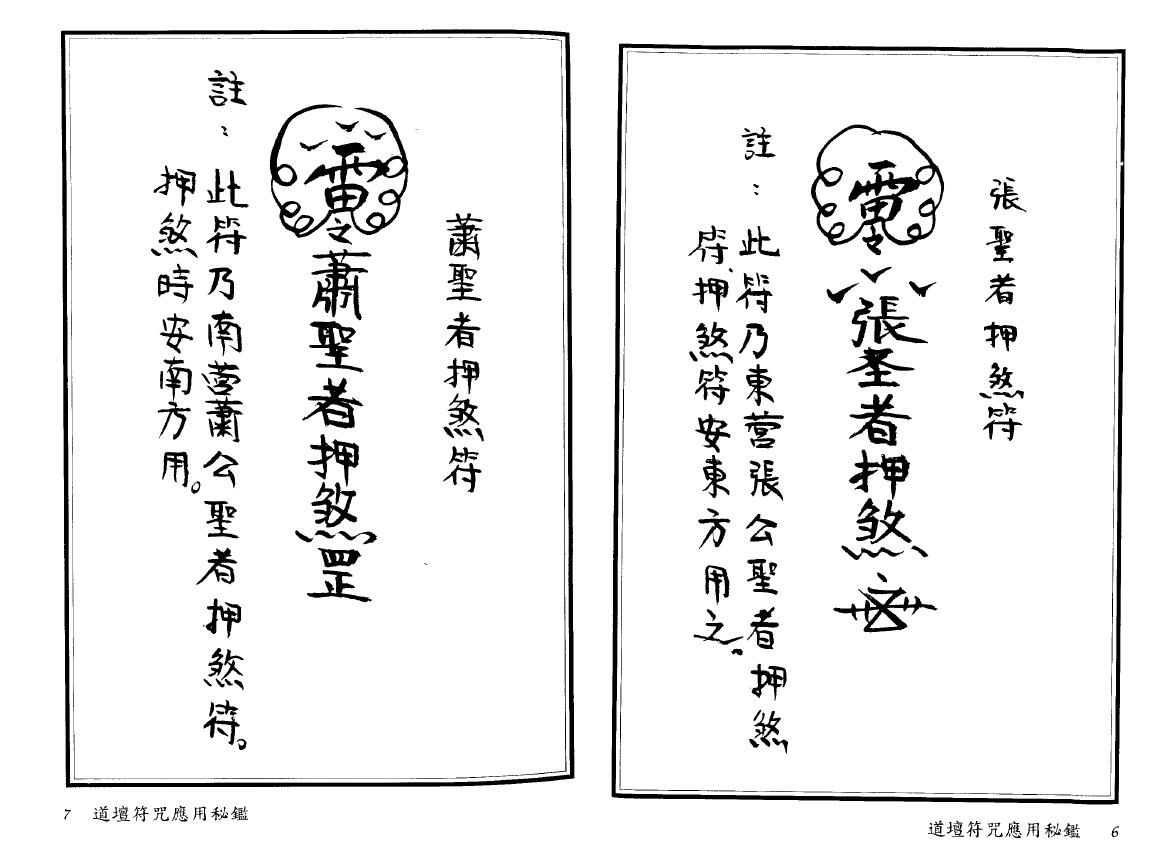 張聖者押煞符
雷令
張圣者押煞
註：此符乃東营張公聖者押煞
符，押煞符安東方用之。
道壇符咒應用秘鑑 6
蕭聖者押煞符
雷令蕭聖者押煞罡
註：此符乃南营蕭公聖者押煞符。
押煞時安南方用。
7 道壇符咒應用秘鑑